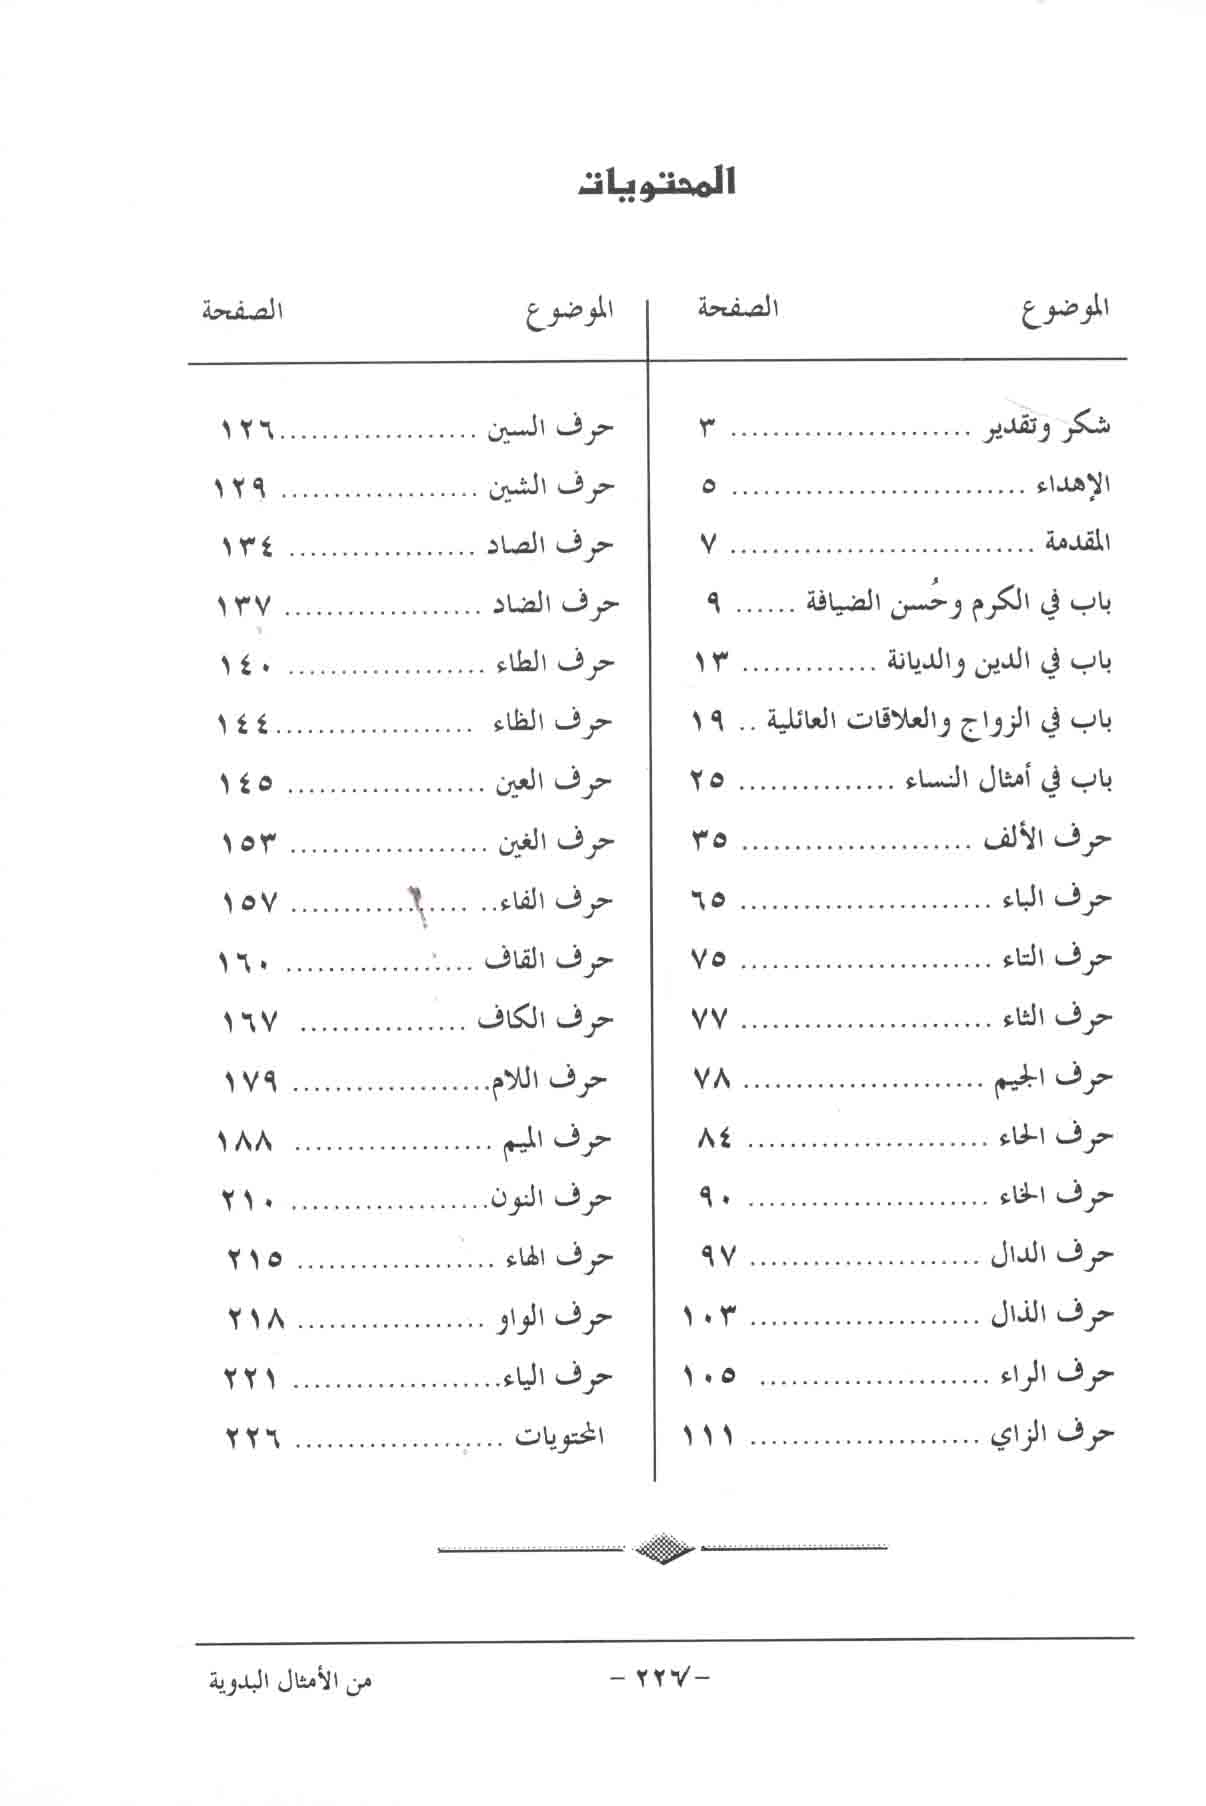 المحتويات
الموضوع الصفحة
شكر وتقدير ...................... ٣
الإهداء ........................... ٥
المقدمة ............................ ٧
باب في الكرم وحُسن الضيافة ...... ٩
باب في الدين والديانة ............. ١٣
باب في الزواج والعلاقات العائلية .. ١٩
باب في أمثال النساء ............... ٢٥
حرف الألف ...................... ٣٥
حرف الباء ........................ ٦٥
حرف التاء ........................ ٧٥
حرف الثاء ........................ ٧٧
حرف الجيم ....................... ٧٨
حرف الحاء ....................... ٨٤
حرف الخاء ....................... ٩٠
حرف الدال ...................... ٩٧
حرف الذال ...................... ١٠٣
حرف الراء ...................... ١٠٥
حرف الزاي ...................... ١١١
الموضوع الصفحة
حرف السين ................... ١٢٦
حرف الشين ................... ١٢٩
حرف الصاد .................. ١٣٤
حرف الضاد ................... ١٣٧
حرف الطاء ................... ١٤٠
حرف الظاء ................... ١٤٤
حرف العين ................... ١٤٥
حرف الغين ................... ١٥٣
حرف الفاء ................... ١٥٧
حرف القاف .................. ١٦٠
حرف الكاف ................ ١٦٧
حرف اللام ................... ١٧٩
حرف الميم ................... ١٨٨
حرف النون ................... ٢١٠
حرف الهاء ................... ٢١٥
حرف الواو .................. ٢١٨
حرف الياء .................... ٢٢١
المحتويات .................... ٢٢٦
من الأمثال البدوية